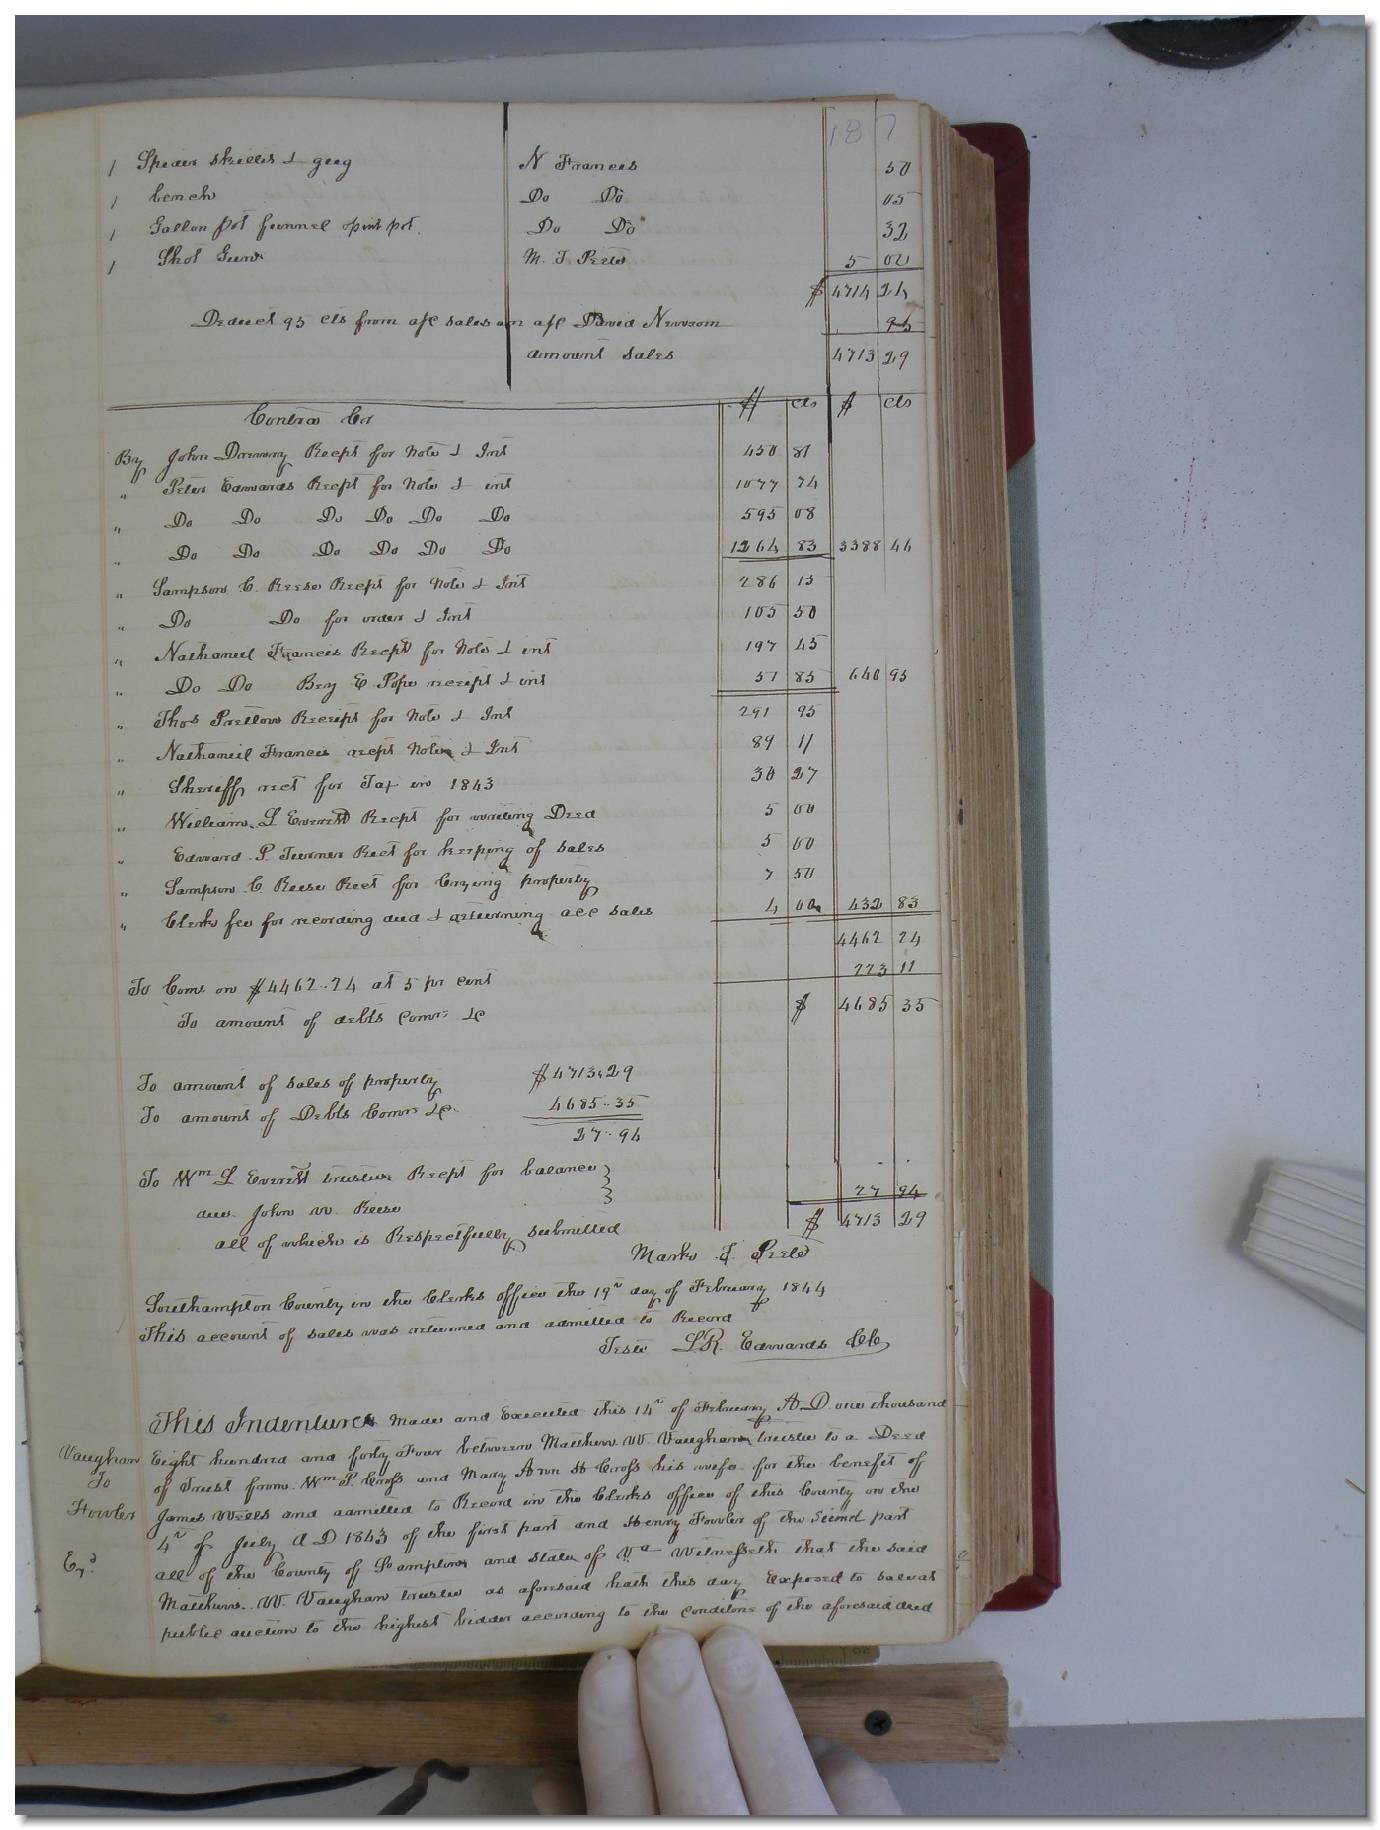 187
1 Spider skillet & gug N Francis 50
1 bench Do Do 05
1 Gallon pot funnel & pint pot Do Do 32
1 Shot Gun M. T. Peete 5 00
$ 4714 24
Deduct 95 cts from a/c sales on a/c David Newsom 95
amount sales 4713 29
Contra Cr $ cts $ cts
By John Drewry Recpt for Note & Int 450 81
" Peter Edwards Recpt for Note & int 1077 74
" Do Do Do Do Do Do 595 08
" Do Do Do Do Do Do 1264 83 3388 46
" Sampson C. Reese Recpt for Note & Int 286 15
" Do Do for order & Int 105 50
" Nathaniel Francis Recpt for Note & int 197 45
" Do Do Bry E Pope receipt & int 51 85 640 95
" Thos Pretlow Receipt for Note & Int 291 95
" Nathaniel Francis recpt Note & Int 89 11
" Sheriff rect for Tax in 1843 30 27
" William L Everett Recpt for writing Deed 5 00
" Edward P. Turner Rect for keeping of sales 5 00
" Sampson C. Reese Rect for Crying property 7 50
" Clerks fee for recording deed & returning acc sales 4 00 432 83
4462 24
To Coms on $4462..24 at 5 pr cent 223 11
To amount of debts Coms &c $ 4685 35
To amount of sales of property $4713.29
To amount of Debts Coms &c. 4685..35
27..94
To Wm L Everett trustee Recpt for balance
due John W. Reese 27 94
all of which is Respectfully submitted $ 4713 29
Marks T. Peete
Southampton County in the Clerks office the 19th day of February 1844
This account of sales was returned and admitted to Record
Teste L R. Edwards Clk
This Indenture Made and Executed this 14th of February A. D. one thousand
Vaughan Eight hundred and forty Four between Matthew W. Vaughan trustee to a Deed
To of Trust from Wm P. Cross and Mary Ann H Cross his wife for the benefit of
Fowler James Wells and admitted to Record in the Clerks office of this County on the
4th of July A D 1843 of the first part and Henry Fowler of the Second part
Exd all of the County of Sampton and State of Va Witnesseth that the said
Matthew W. Vaughan trustee as aforesaid hath this day Exposed to sale at
public auction to the highest bidder according to the conditions of the aforesaid deed